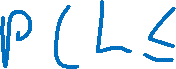 P(L≤